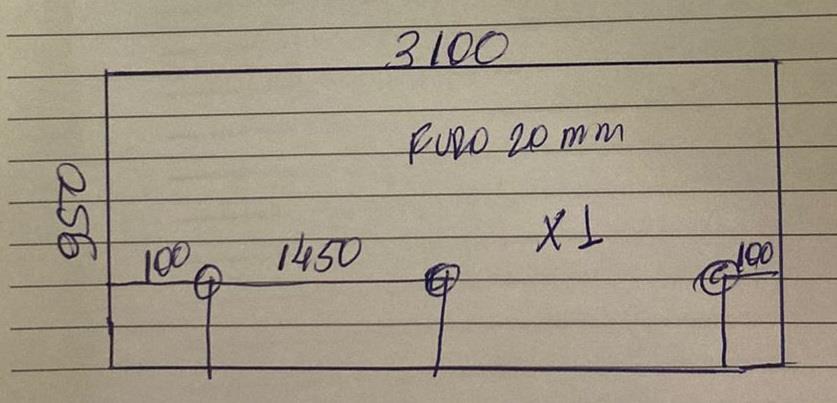 3100
FURO 20 mm
256
X1
100 1450 100